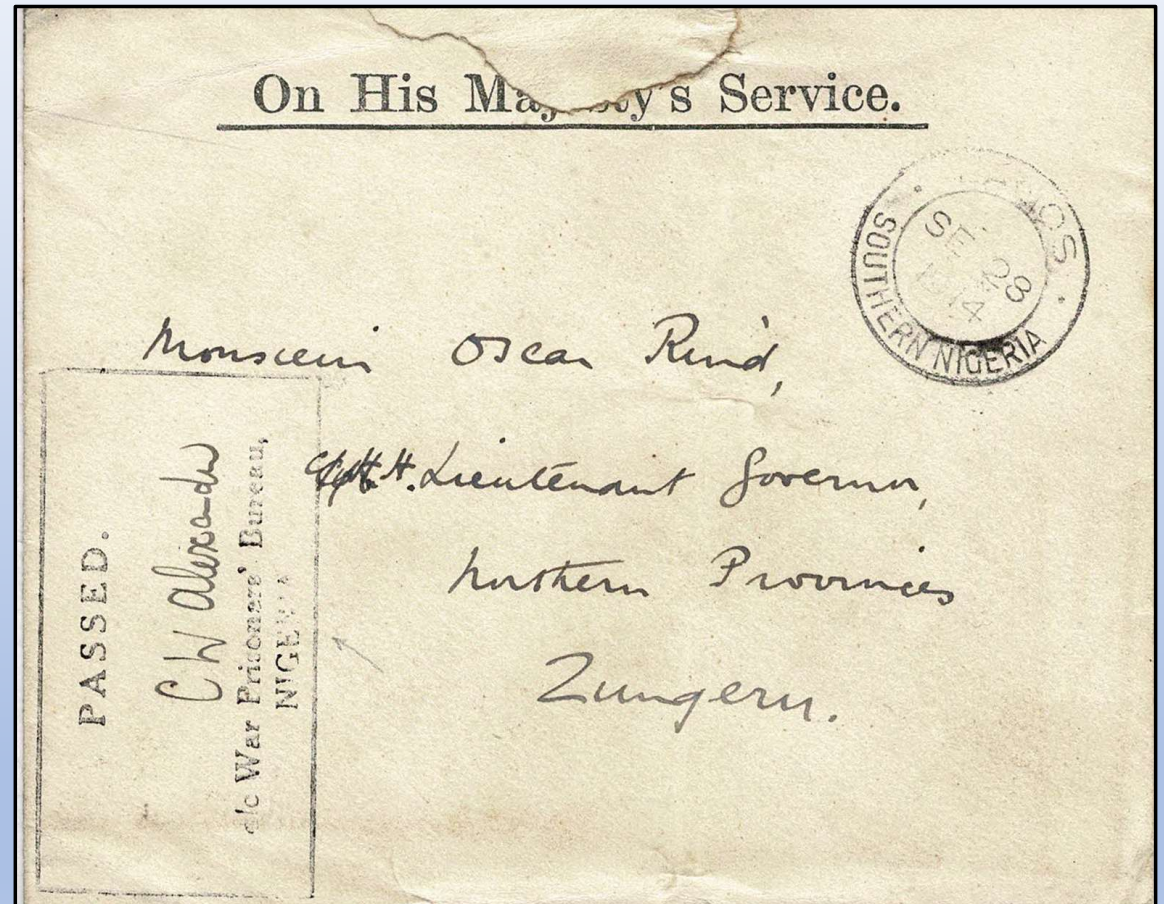 On His Majesty's Service.
LAGOS
SE 28
1914
SOUTHERN NIGERIA
Monsieur Oscar
Lieutenant Governor,
Northern Provinces
Zungeru.
PASSED.
C W Alexander
o/c War Prisoners' Bureau,
NIGERIA